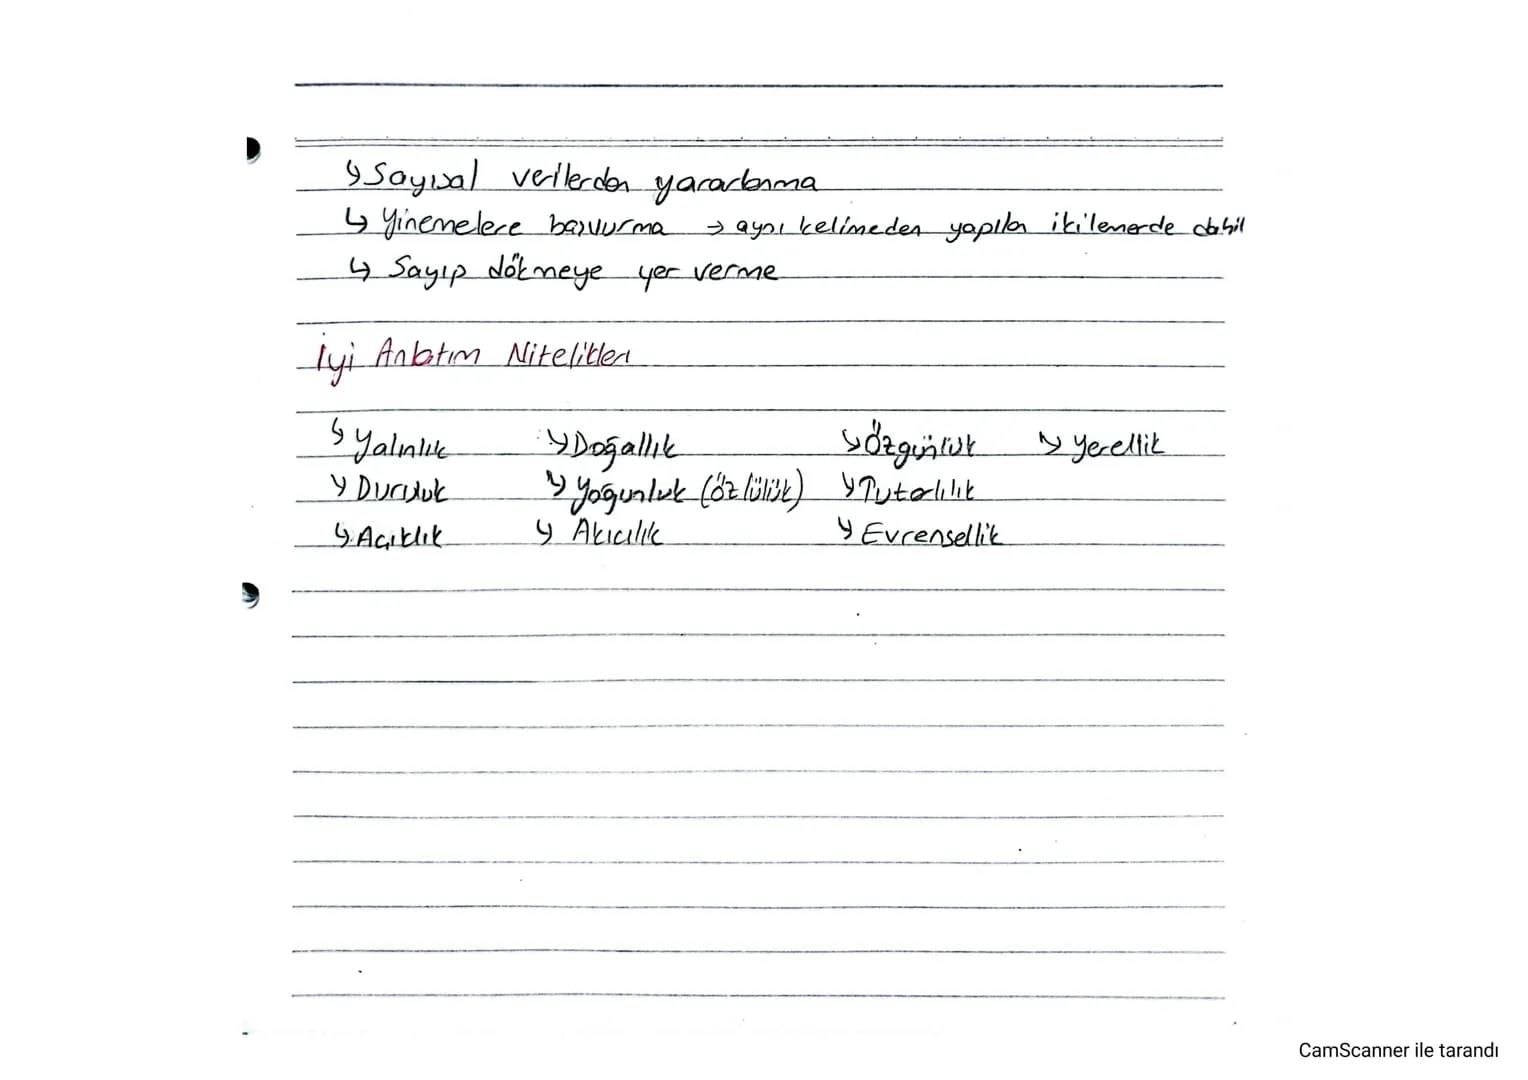 ↳ Sayısal verilerden yararlanma
↳ Yinemelere başvurma → aynı kelimeden yapılan ikilemerde dahil
↳ Sayıp dökmeye yer verme
İyi Anlatım Nitelikleri
↳ Yalınlık ↳ Doğallık ↳ Özgünlük ↳ Yerellik
↳ Duruluk ↳ Yoğunluk (özlülük) ↳ Tutarlılık
↳ Açıklık ↳ Akıcılık ↳ Evrensellik
CamScanner ile tarandı